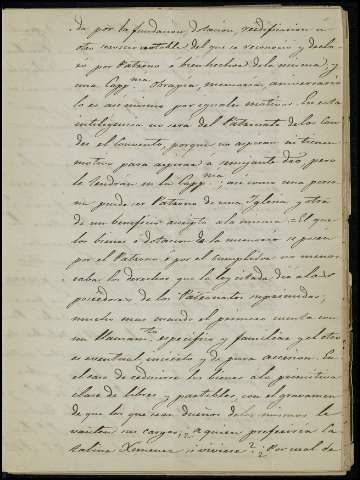 da, por la fundacion, dotacion, reedificacion ú
otro servicio notable del que se reconoce y decla-
ró por Patrono ó bienhechor de la misma, y
una Capp.nia obrapia, memoria, aniversario
lo es asimismo por iguales motivos. En esta
inteligencia no será del Patronato de los Con-
des el Convento, porque no aspiran ni tienen
motivo para aspirar a semejante dro, pero
le tendrán en la Capp.nia; asi como una perso-
na puede ser Patrono de una Iglesia y otra
de un beneficio accepto a la misma = El que
los bienes ó dotacion de la memoria se pidan
por el Patrono ó por el cumplidor no menos-
caba los derechos que la ley citada dá a los
poseedores de los Patronatos suprimidos;
mucho mas cuando el primero cuenta con
un llamam.to especifico y familiar y el otro
es eventual incierto y de pura accesion. En
el caso de reducirse los bienes a la primitiva
clase de libres y partibles, con el gravamen
de que los que sean dueños de los mismos le-
vanten sus cargas, ¿a quien preferiria la
Ximenez si viviese? ¿Por cual de